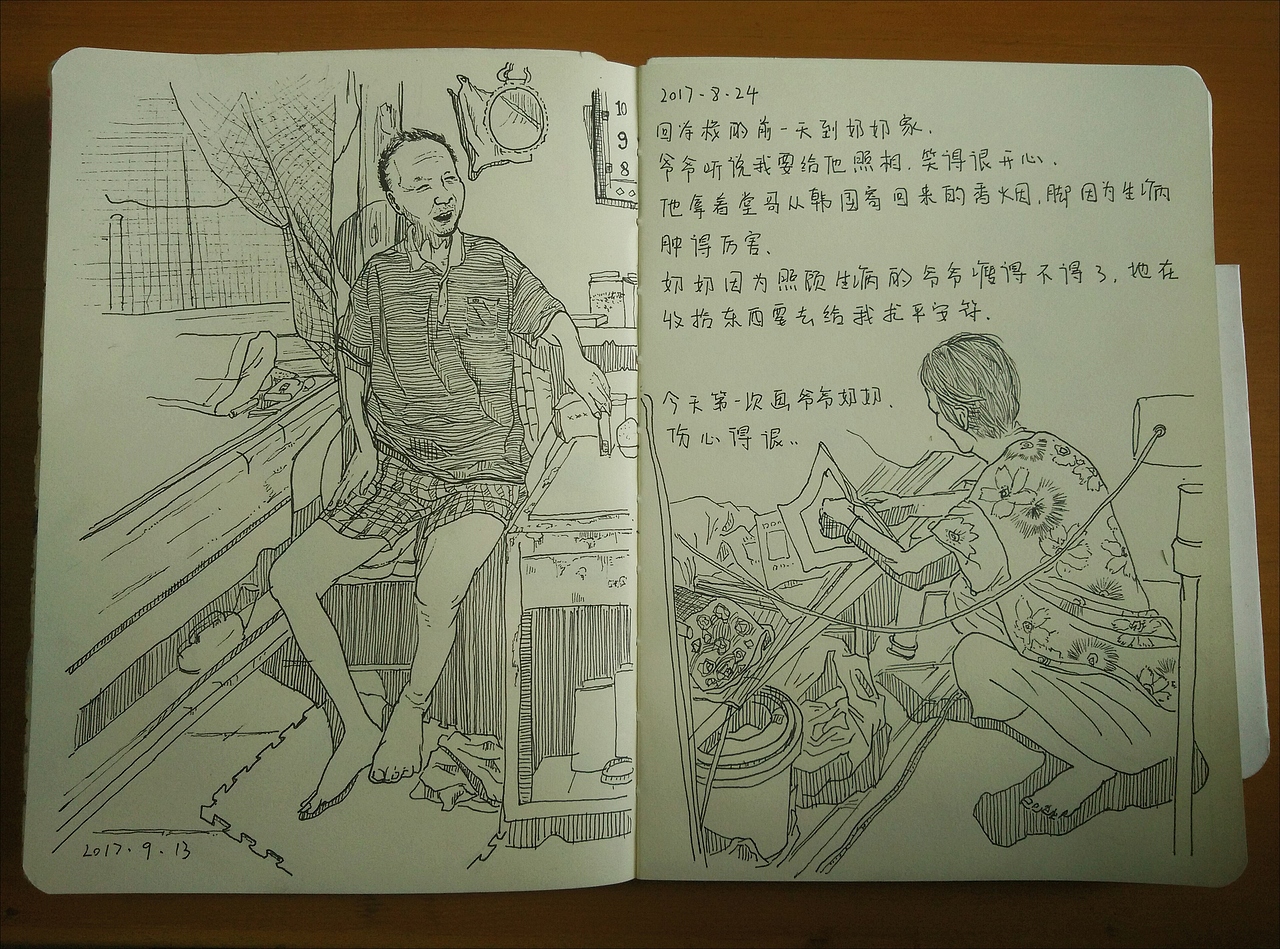 10
9
8
2017.9.13
2017.8.24
回学校的前一天到奶奶家.
爷爷听说我要给他照相.笑得很开心.
他拿着堂哥从韩国寄回来的香烟,脚因为生病
肿得厉害.
奶奶因为照顾生病的爷爷瘦得不得了,她在
收拾东西要去给我求平安符.
今天第一次画爷爷奶奶.
伤心得很..